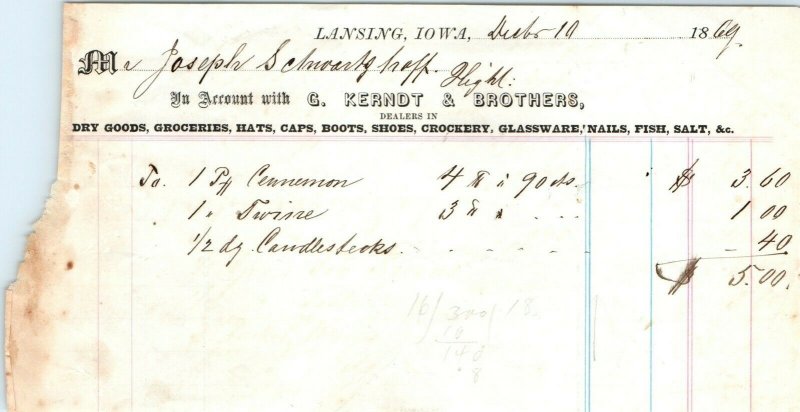 LANSING, IOWA, Decbr 10 1869
Mr Joseph Schwartzhoff
In Account with G. KERNDT & BROTHERS,
DEALERS IN
DRY GOODS, GROCERIES, HATS, CAPS, BOOTS, SHOES, CROCKERY, GLASSWARE, NAILS, FISH, SALT, &c.
To 1 Cennemon 4 90 cts. $ 3.60
1 " Twine 3 1 00
1/2 dz Candlestecks - - - - - - 40
$ 5.00
16 / 300 / 18
16
140
8